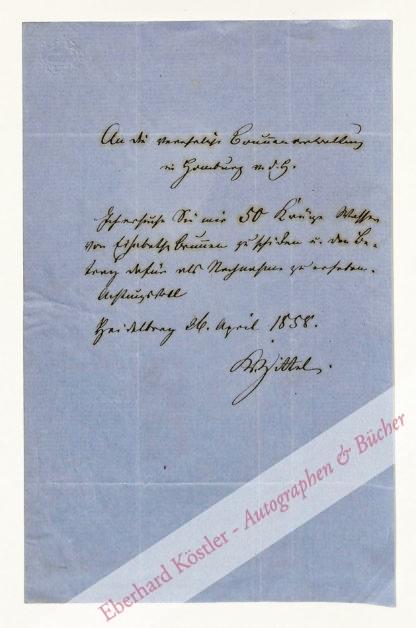 An die verehrliche Brunnenverwaltung
in Homburg v. d. H.
Ich ersuche Sie mir 50 Krüge Wasser
vom Elisabeths Brunnen zu schicken u. den Be-
trag dafür als Nachnahme zu erheben.
Achtungsvoll
Heidelberg 26. April 1858.
Zittel.
Eberhard Köstler - Autographen & Bücher